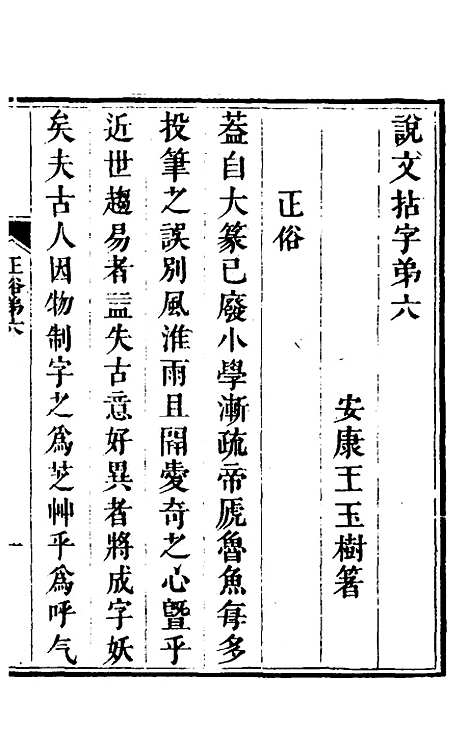 說文拈字弟六
安康王玉樹箸
正俗
葢自大篆已廢小學漸疏帝虒魯魚每多
投筆之誤別風淮雨且開愛奇之心曁乎
近世趨易者益失古意好異者將成字妖
矣夫古人因物制字之爲芝艸乎爲呼气
正俗弟六
一